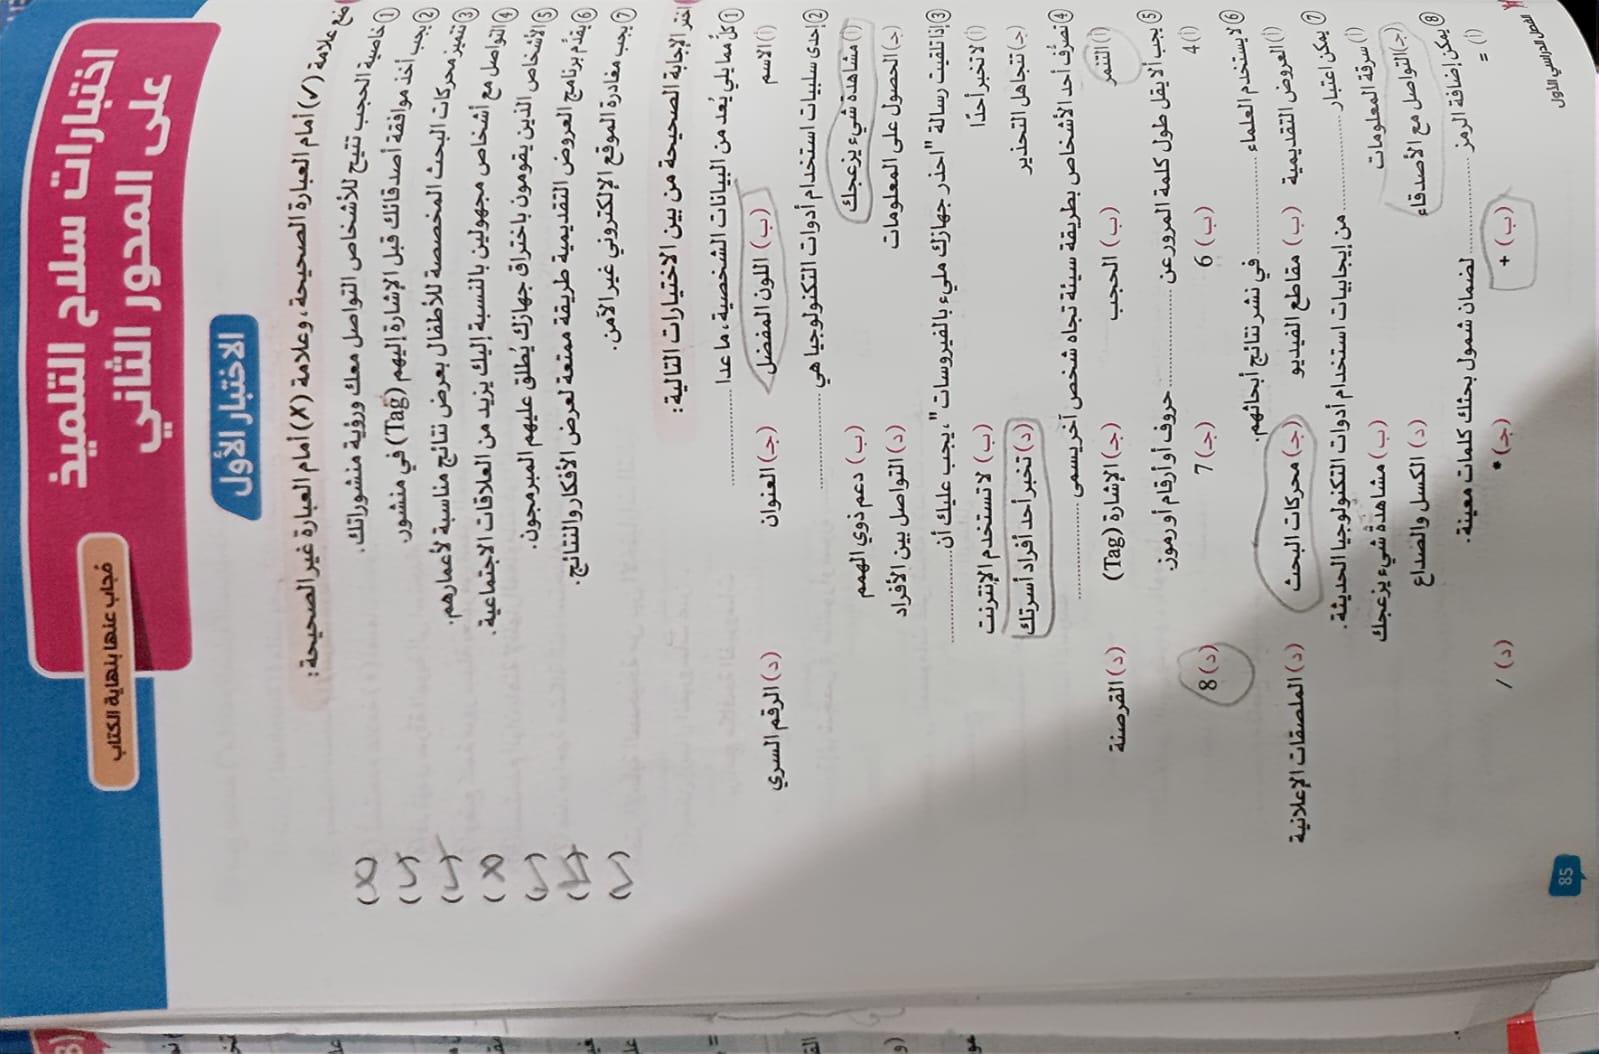 اختبارات سلاح التلميذ
على المحور الثاني
مُجاب عنها بنهاية الكتاب
الاختبار الأول
ضع علامة (✓) أمام العبارة الصحيحة، وعلامة (X) أمام العبارة غير الصحيحة:
1 خاصية الحجب تتيح للأشخاص التواصل معك ورؤية منشوراتك. (X)
2 يجب أخذ موافقة أصدقائك قبل الإشارة إليهم (Tag) في منشور. (✓)
3 تتميز محركات البحث المخصصة للأطفال بعرض نتائج مناسبة لأعمارهم. (✓)
4 التواصل مع أشخاص مجهولين بالنسبة إليك يزيد من العلاقات الاجتماعية. (X)
5 الأشخاص الذين يقومون باختراق جهازك يُطلق عليهم المبرمجون. (✓)
6 يقدم برنامج العروض التقديمية طريقة ممتعة لعرض الأفكار والنتائج.
7 يجب مغادرة الموقع الإلكتروني غير الآمن. (✓)
اختر الإجابة الصحيحة من بين الاختيارات التالية:
1 كلٌ مما يلي يُعد من البيانات الشخصية، ما عدا ..........
(أ) الاسم (ب) اللون المفضل (جـ) العنوان (د) الرقم السري
2 إحدى سلبيات استخدام أدوات التكنولوجيا هي ..........
(أ) مشاهدة شيء يزعجك (ب) دعم ذوي الهمم
(جـ) الحصول على المعلومات (د) التواصل بين الأفراد
3 إذا تلقيت رسالة "احذر جهازك مليء بالفيروسات"، يجب عليك أن ..........
(أ) لا تخبر أحدًا (ب) لا تستخدم الإنترنت
(جـ) تتجاهل التحذير (د) تخبر أحد أفراد أسرتك
4 تصرُّف أحد الأشخاص بطريقة سيئة تجاه شخص آخر يسمى ..........
(أ) التنمر (ب) الحجب (جـ) الإشارة (Tag) (د) القرصنة
5 يجب ألا يقل طول كلمة المرور عن .......... حروف أو أرقام أو رموز.
(أ) 4 (ب) 6 (جـ) 7 (د) 8
6 لا يستخدم العلماء .......... في نشر نتائج أبحاثهم.
(أ) العروض التقديمية (ب) مقاطع الفيديو (جـ) محركات البحث (د) الملصقات الإعلانية
7 يمكن اعتبار .......... من إيجابيات استخدام أدوات التكنولوجيا الحديثة.
(أ) سرقة المعلومات (ب) مشاهدة شيء يزعجك
(جـ) التواصل مع الأصدقاء (د) الكسل والصداع
8 يمكن إضافة الرمز .......... لضمان شمول بحثك كلمات معينة.
(أ) = (ب) + (جـ) * (د) /
الفصل الدراسي الأول
85